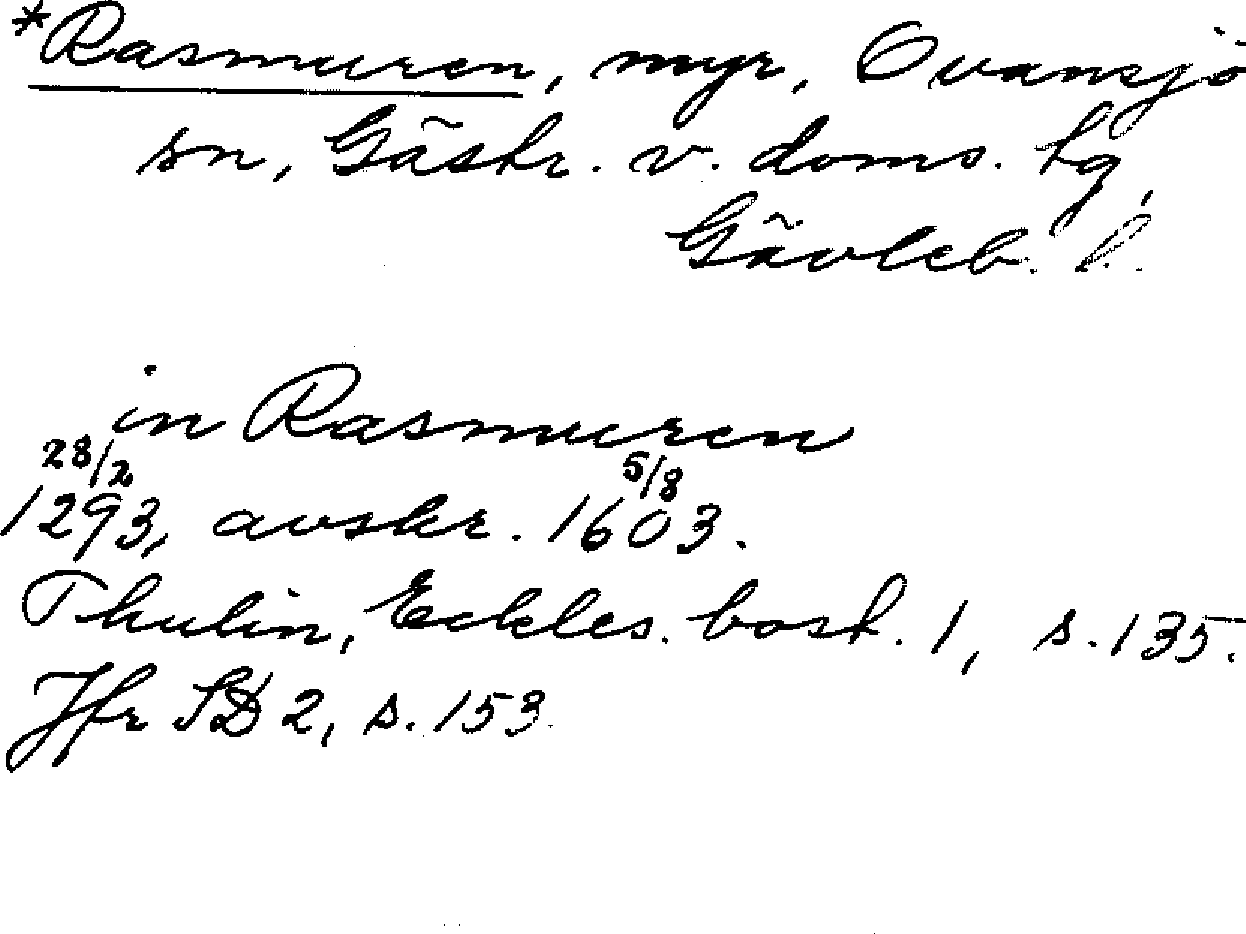 *Rasmuren, myr, Ovansjö
sn, Gästr. v. doms. tg,
Gävleb. l.
in Rasmuren
28/2 5/8
1293, avskr. 1603.
Thulin, Eckles. bost. 1, s. 135.
Jfr SD 2, s. 153.